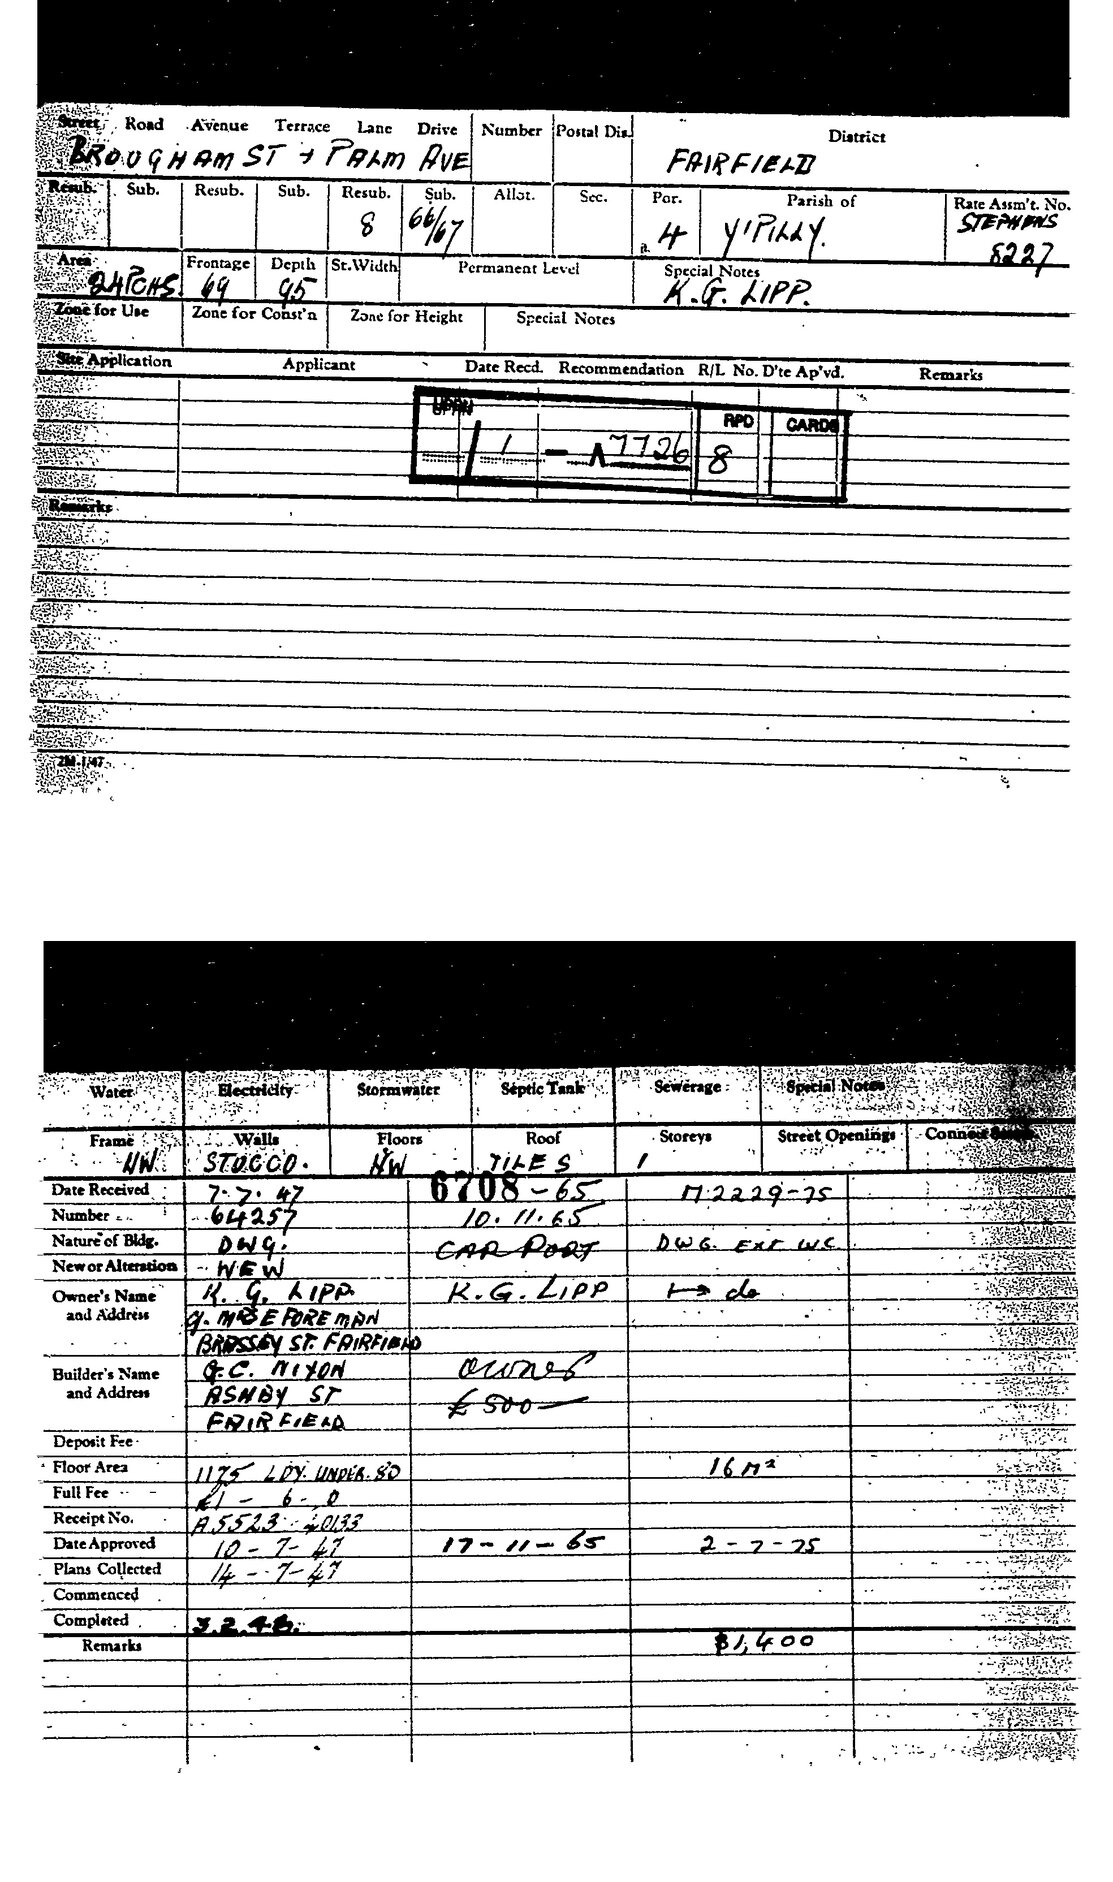 Street Road Avenue Terrace Lane Drive Number Postal Dis. District
BROUGHAM ST + PALM AVE FAIRFIELD
Resub. Sub. Resub. Sub. Resub. Sub. Allot. Sec. Por. Parish of Rate Assm't. No.
8 66/67 4 Y'PILLY. STEPHENS
8227
Area Frontage Depth St.Width Permanent Level Special Notes
24 PCHS. 69 95 K.G. LIPP.
Zone for Use Zone for Const'n Zone for Height Special Notes
Site Application Applicant Date Recd. Recommendation R/L No. D'te Ap'vd. Remarks
UPRN RPD CARDS
/ 1 - 7726 8
Remarks
2M-1/47
Water Electricity Stormwater Septic Tank Sewerage Special Notes
Frame Walls Floors Roof Storeys Street Openings
HW. STUCCO. HW TILES 1
Date Received 7.7.47 6708-65 M2229-75
Number 64257 10.11.65
Nature of Bldg. DWG. CAR PORT DWG. EXT WC
New or Alteration NEW
Owner's Name K. G. LIPP K.G. LIPP do
and Address MRS E FOREMAN
BRASSEY ST. FAIRFIELD
Builder's Name G.C. NIXON owner
and Address ASHBY ST £500
FAIRFIELD
Deposit Fee
Floor Area 1175 LDY. UNDER. 80 16 M²
Full Fee £1 - 6 - 0
Receipt No. A5523
Date Approved 10-7-47 17-11-65 2-7-75
Plans Collected 14-7-47
Commenced
Completed 3.2.48.
Remarks $1,400